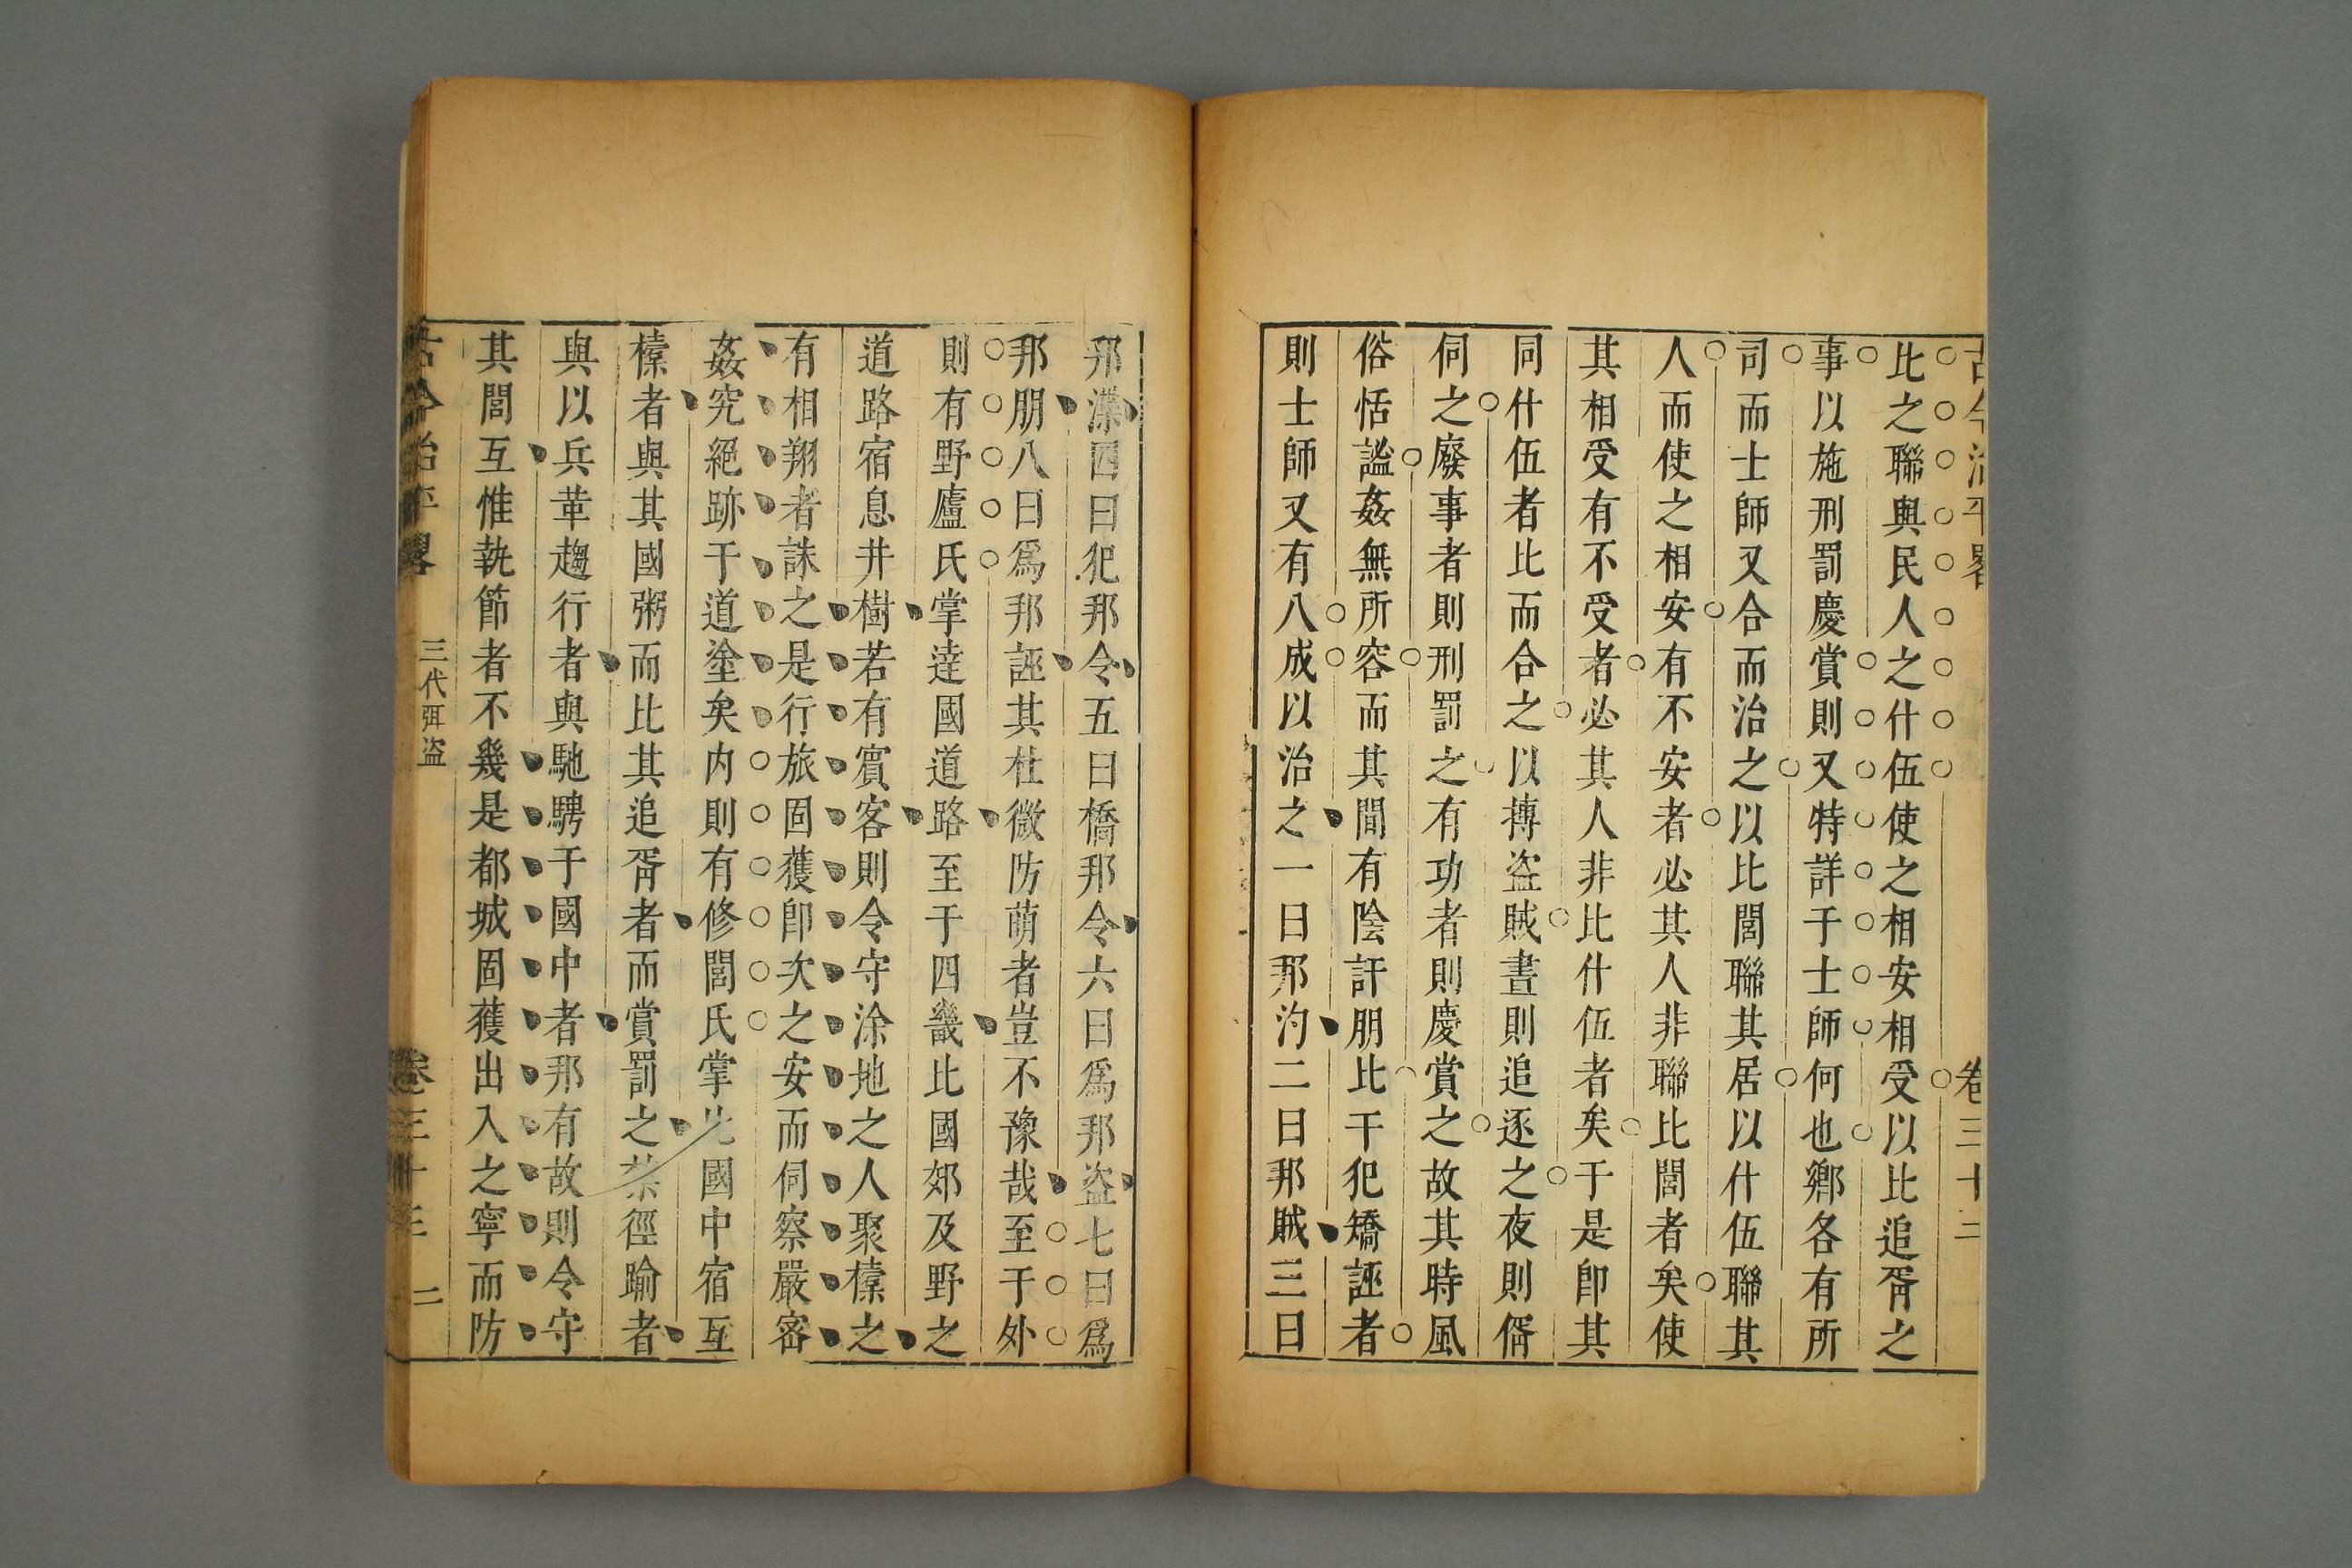 古今治平畧
卷三十三
比之聯與民人之什伍使之相安相受以比追胥之
事以施刑罰慶賞則又特詳于士師何也鄉各有所
司而士師又合而治之以比閭聯其居以什伍聯其
人而使之相安有不安者必其人非聯比閭者矣使
其相受有不受者必其人非比什伍者矣于是卽其
同什伍者比而合之以搏盜賊晝則追逐之夜則偦
伺之廢事者則刑罰之有功者則慶賞之故其時風
俗恬謐姦無所容而其間有陰訐朋比干犯矯誣者
則士師又有八成以治之一曰邦汋二曰邦賊三曰
邦諜四曰犯邦令五曰橋邦令六曰爲邦盜七曰爲
邦朋八曰爲邦誣其杜微防萌者豈不豫哉至于外
則有野廬氏掌達國道路至于四畿比國郊及野之
道路宿息井樹若有賓客則令守涂地之人聚㯿之
有相翔者誅之是行旅固獲卽次之安而伺察嚴密
姦宄絕跡于道塗矣內則有修閭氏掌比國中宿互
㯿者與其國粥而比其追胥者而賞罰之禁徑踰者
與以兵革趨行者與馳騁于國中者邦有故則令守
其閭互惟執節者不幾是都城固獲出入之寧而防
古今治平畧
三代弭盜
卷三十三
二